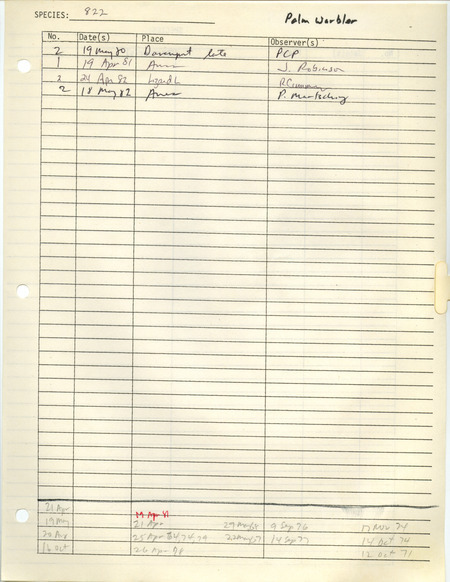 SPECIES: 822 Palm Warbler
No. Date(s) Place Observer(s)
2 19 May 80 Davenport late PCP
1 19 Apr 81 Ames J. Robinson
2 24 Apr 82 Lizard L
2 18 May 82 Ames P. Martsching
21 Apr 19 Apr 81
19 May 21 Apr 29 May 9 Sep 76 17 Nov 74
25 Apr 74 14 Sep 77 14 Oct 74
16 Oct 26 Apr 12 Oct 71